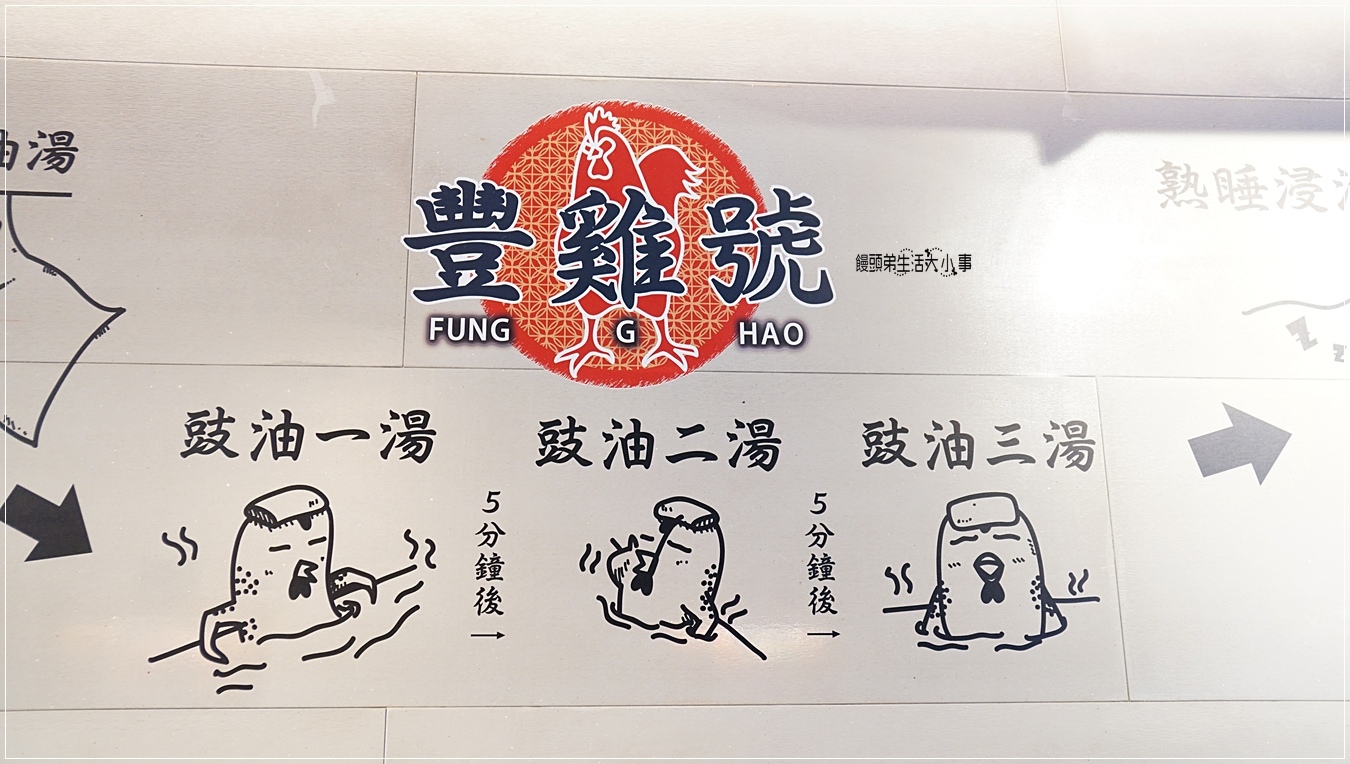 油湯
豐雞號
FUNG G HAO
饅頭弟生活大小事
熟睡浸
豉油一湯
豉油二湯
豉油三湯
5分鐘後
5分鐘後
Z
Z